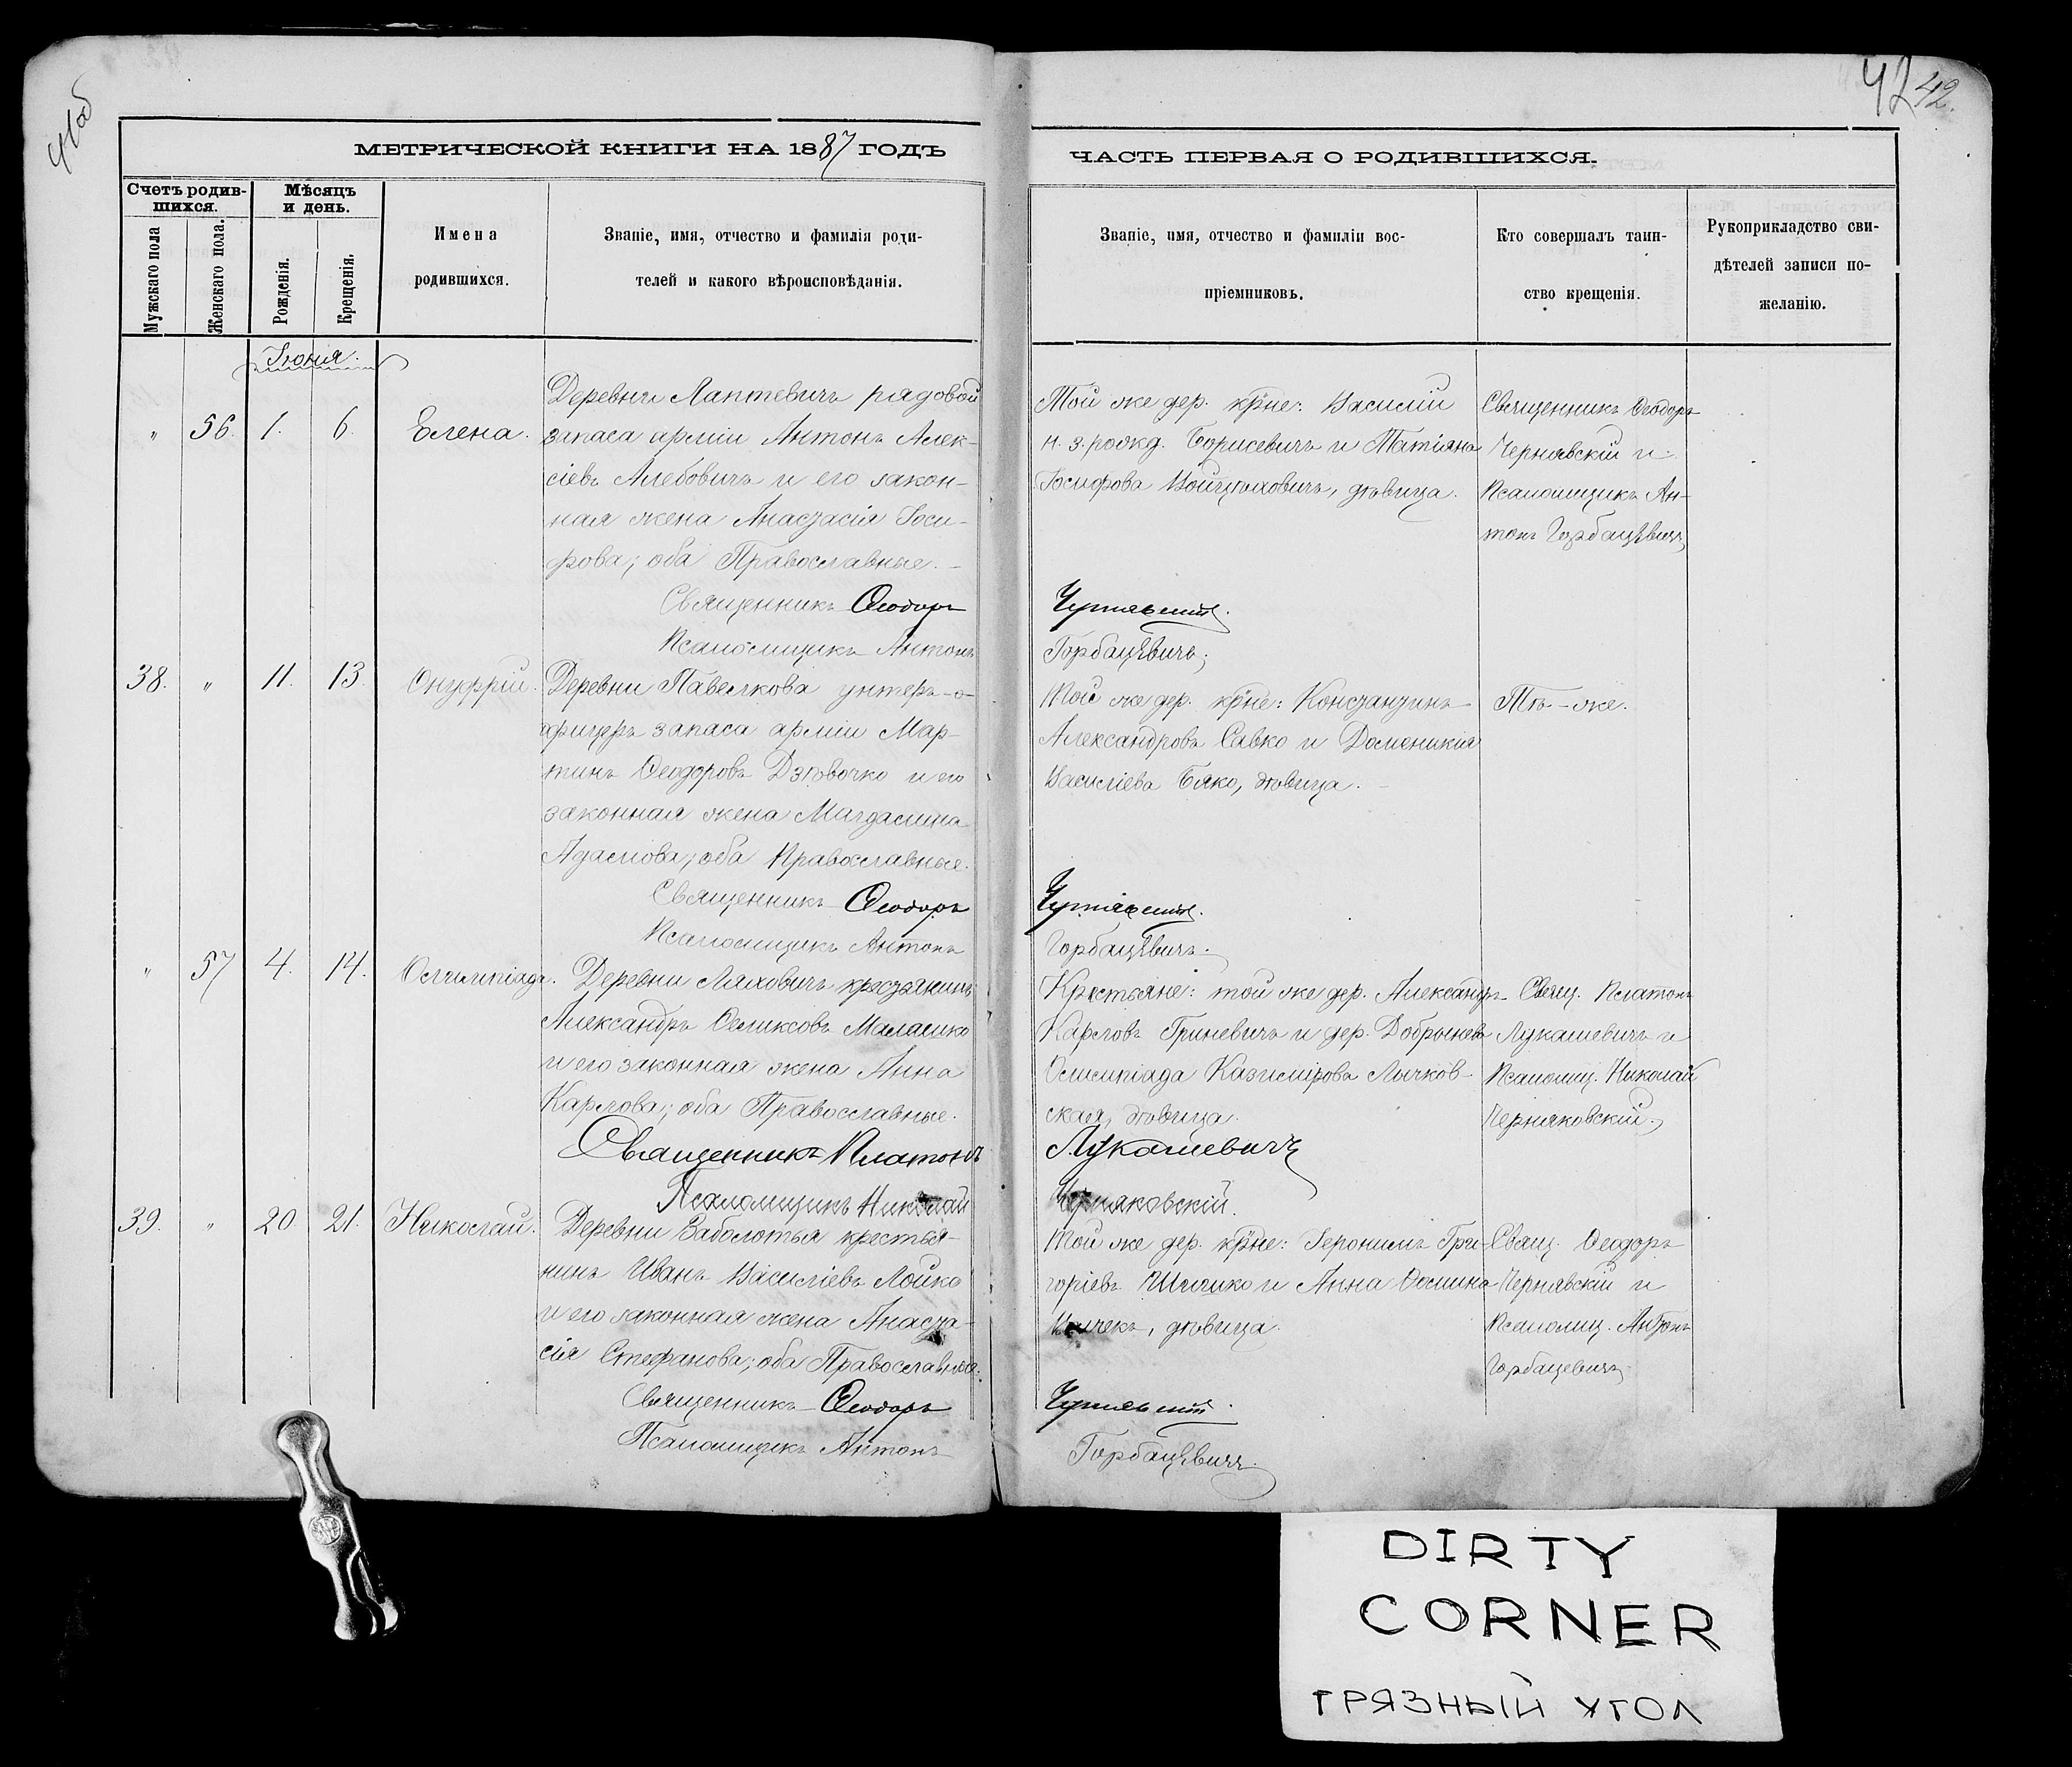 41об
42 42.
МЕТРИЧЕСКОЙ КНИГИ НА 1887 ГОДЪ
ЧАСТЬ ПЕРВАЯ О РОДИВШИХСЯ.
Счетъ родив-
шихся.
Мужскаго пола
Женскаго пола.
Мѣсяцъ
и день.
Рожденія.
Крещенія.
Имена
родившихся.
Званіе, имя, отчество и фамилія роди-
телей и какого вѣроисповѣданія.
Званіе, имя, отчество и фамиліи вос-
пріемниковъ.
Кто совершалъ таин-
ство крещенія.
Рукоприкладство сви-
дѣтелей записи по-
желанію.
Іюня.
„ 56. 1. 6. Елена.
Деревни Лаптевичъ рядовой
запаса арміи Антонъ Алек-
сіевъ Алебовичъ и его закон-
ная жена Анастасія Іоси-
фова; оба Православные.
Священникъ Ѳеодоръ
Псаломщикъ Антонъ
Той же дер. кр̃не: Василій
н. з. рожд. Борисевичъ и Татіяна
Іосифова Войцѣховичъ, дѣвица.
Чернявскій.
Горбацевичъ;
Священникъ Ѳеодоръ
Чернявскій и
Псаломщикъ Ан-
тонъ Горбацевичъ
38. „ 11. 13. Онуфрій.
Деревни Павелкова унтеръ-о-
фицеръ запаса арміи Мар-
тинъ Ѳеодоровъ Дзѣвочко и его
законная жена Магдалина
Адамова; оба Православные.
Священникъ Ѳеодоръ
Псаломщикъ Антонъ
Той же дер. кр̃не: Константинъ
Александровъ Савко и Домоникія
Василіева Бяко, дѣвица.
Чернявскій.
Горбацевичъ.
Тѣ-же.
„ 57 4. 14. Олимпіада.
Деревни Ляховичъ крестьянинъ
Александръ Феликсовъ Маласшко
и его законная жена Анна
Карлова; оба Православные.
Священникъ Платонъ
Псаломщикъ Николай
Крестьяне: той же дер. Александръ
Карловъ Гриневичъ и дер. Добрынева
Олимпіада Казимірова Лычков-
ская, дѣвица.
Лукашевичъ
Черняковскій.
Свящ. Платонъ
Лукашевичъ и
Псаломщ. Николай
Черняковскій.
39. „ 20. 21. Николай.
Деревни Заболотья крестья-
нинъ Иванъ Василіевъ Лойко
и его законная жена Анаста-
сія Стефанова; оба Православные.
Священникъ Ѳеодоръ
Псаломщикъ Антонъ
Той же дер. кр̃не: Іеронимъ Гри-
горіевъ и Анна Ѳомина
дѣвица.
Чернявскій.
Горбацевичъ.
Свящ. Ѳеодоръ
Чернявскій и
Псаломщ. Антонъ
Горбацевичъ
DIRTY
CORNER
ГРЯЗНЫЙ УГОЛ